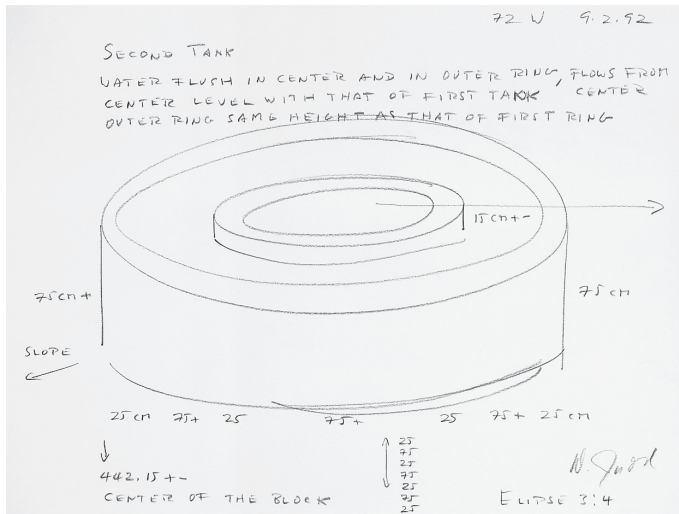 72 W 9.2.92
SECOND TANK
WATER FLUSH IN CENTER AND IN OUTER RING, FLOWS FROM CENTER
CENTER LEVEL WITH THAT OF FIRST TANK
OUTER RING SAME HEIGHT AS THAT OF FIRST RING
15 cm +-
75 cm +
75 cm
SLOPE
25 cm 75+ 25 75+ 25 75+ 25 cm
442.15 +-
CENTER OF THE BLOCK
25
75
25
75
25
75
25
D. Judd
ELIPSE 3:4